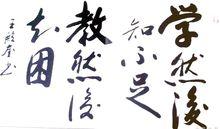 学然後
知不足
教然後
知困